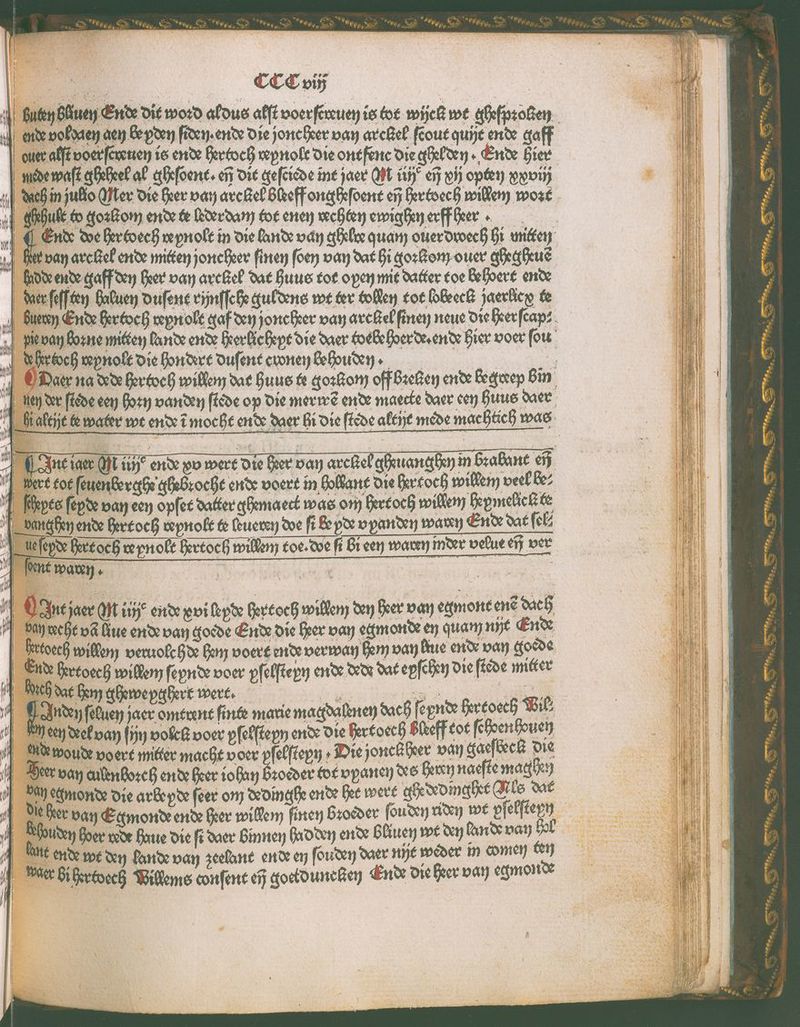 CCC viij
buten bliuen Ende dit word aldus alst voerscreuen is tot wijck wt ghesproken
ende voldaen aen beyden siden. ende die joncheer van arckel scout quijt ende gaff
ouer alst voerscreuen is ende hertoch reynolt die ontfenc die ghelden. Ende hier
mede wast gheheel al ghesoent. eñ dit gesciede int jaer M iiijᶜ eñ xij opten xxviij
dach in julio Mer die heer van arckel bleeff onghesoent eñ hertoech willem wort
ghehult to gorkom ende te lederdam tot enen rechten ewighen erff heer .
¶ Ende doe hertoech reynolt in die lande van ghelre quam ouerdroech hi mitten
heer van arckel ende mitten joncheer sinen soen van dat hi gorkom ouer ghegheuē
hadde ende gaff den heer van arckel dat huus tot oyen mit datter toe behoert ende
daer sesften haluen dusent rijnssche guldens wt ter tollen tot lobeeck jaerlicx te
bueren Ende hertoch reynolt gaf den joncheer van arckel sinen neue die heerscap-
pie van borne mitten lande ende heerlicheyt die daer toebehoerde. ende hier voer sou
de hertoch reynolt die hondert dusent cronen behouden .
¶ Daer na dede hertoch willem dat huus te gorkom off breken ende begreep bin
nen der stede een horn vanden stede op die merwē ende maecte daer een huus daer
hi altijt te water wt ende ī mocht ende daer hi die stede altijt mede machtich was
¶ Int iaer M iiijᶜ ende xv wert die heer van arckel gheuanghen in brabant eñ
wert tot seuenberghe ghebrocht ende voert in hollant die hertoch willem veel be-
scheyts seyde van een opset datter ghemaect was om hertoch willem heymelick te
vanghen ende hertoch reynolt te leueren doe si beyde vyanden waren Ende dat sel-
ue seyde hertoch reynolt hertoch willem toe. doe si bi een waren inder velue eñ ver
soent waren .
¶ Int jaer M iiijᶜ ende xvi leyde hertoch willem den heer van egmont enē dach
van recht vā liue ende van goede Ende die heer van egmonde en quam nijt Ende
hertoech willem veruolchde hem voert ende verwan hem van liue ende van goede
Ende hertoech willem seynde voer yselsteyn ende dede dat eyschen die stede mitter
borch dat hem gheweyghert wert.
¶ Inden seluen jaer omtrent sinte marie magdalenen dach seynde hertoech Wil-
lem een deel van sijn volck voer yselsteyn ende die hertoech bleeff tot schoenhouen
ende woude voert mitter macht voer yselsteyn . Die jonckheer van gaesbeck die
Heer van culenborch ende heer iohan broeder tot vyanen des heren naeste maghen
van egmonde die arbeyde seer om dedinghe ende het wert ghededinghet Als dat
die heer van Egmonde ende heer willem sinen broeder souden riden wt yselsteyn
behouden hoer rede haue die si daer binnen hadden ende bliuen wt den lande van hol
lant ende wt den lande van zeelant ende en souden daer nijt weder in comen ten
waer bi hertoech Willems consent eñ goetduncken Ende die heer van egmonde